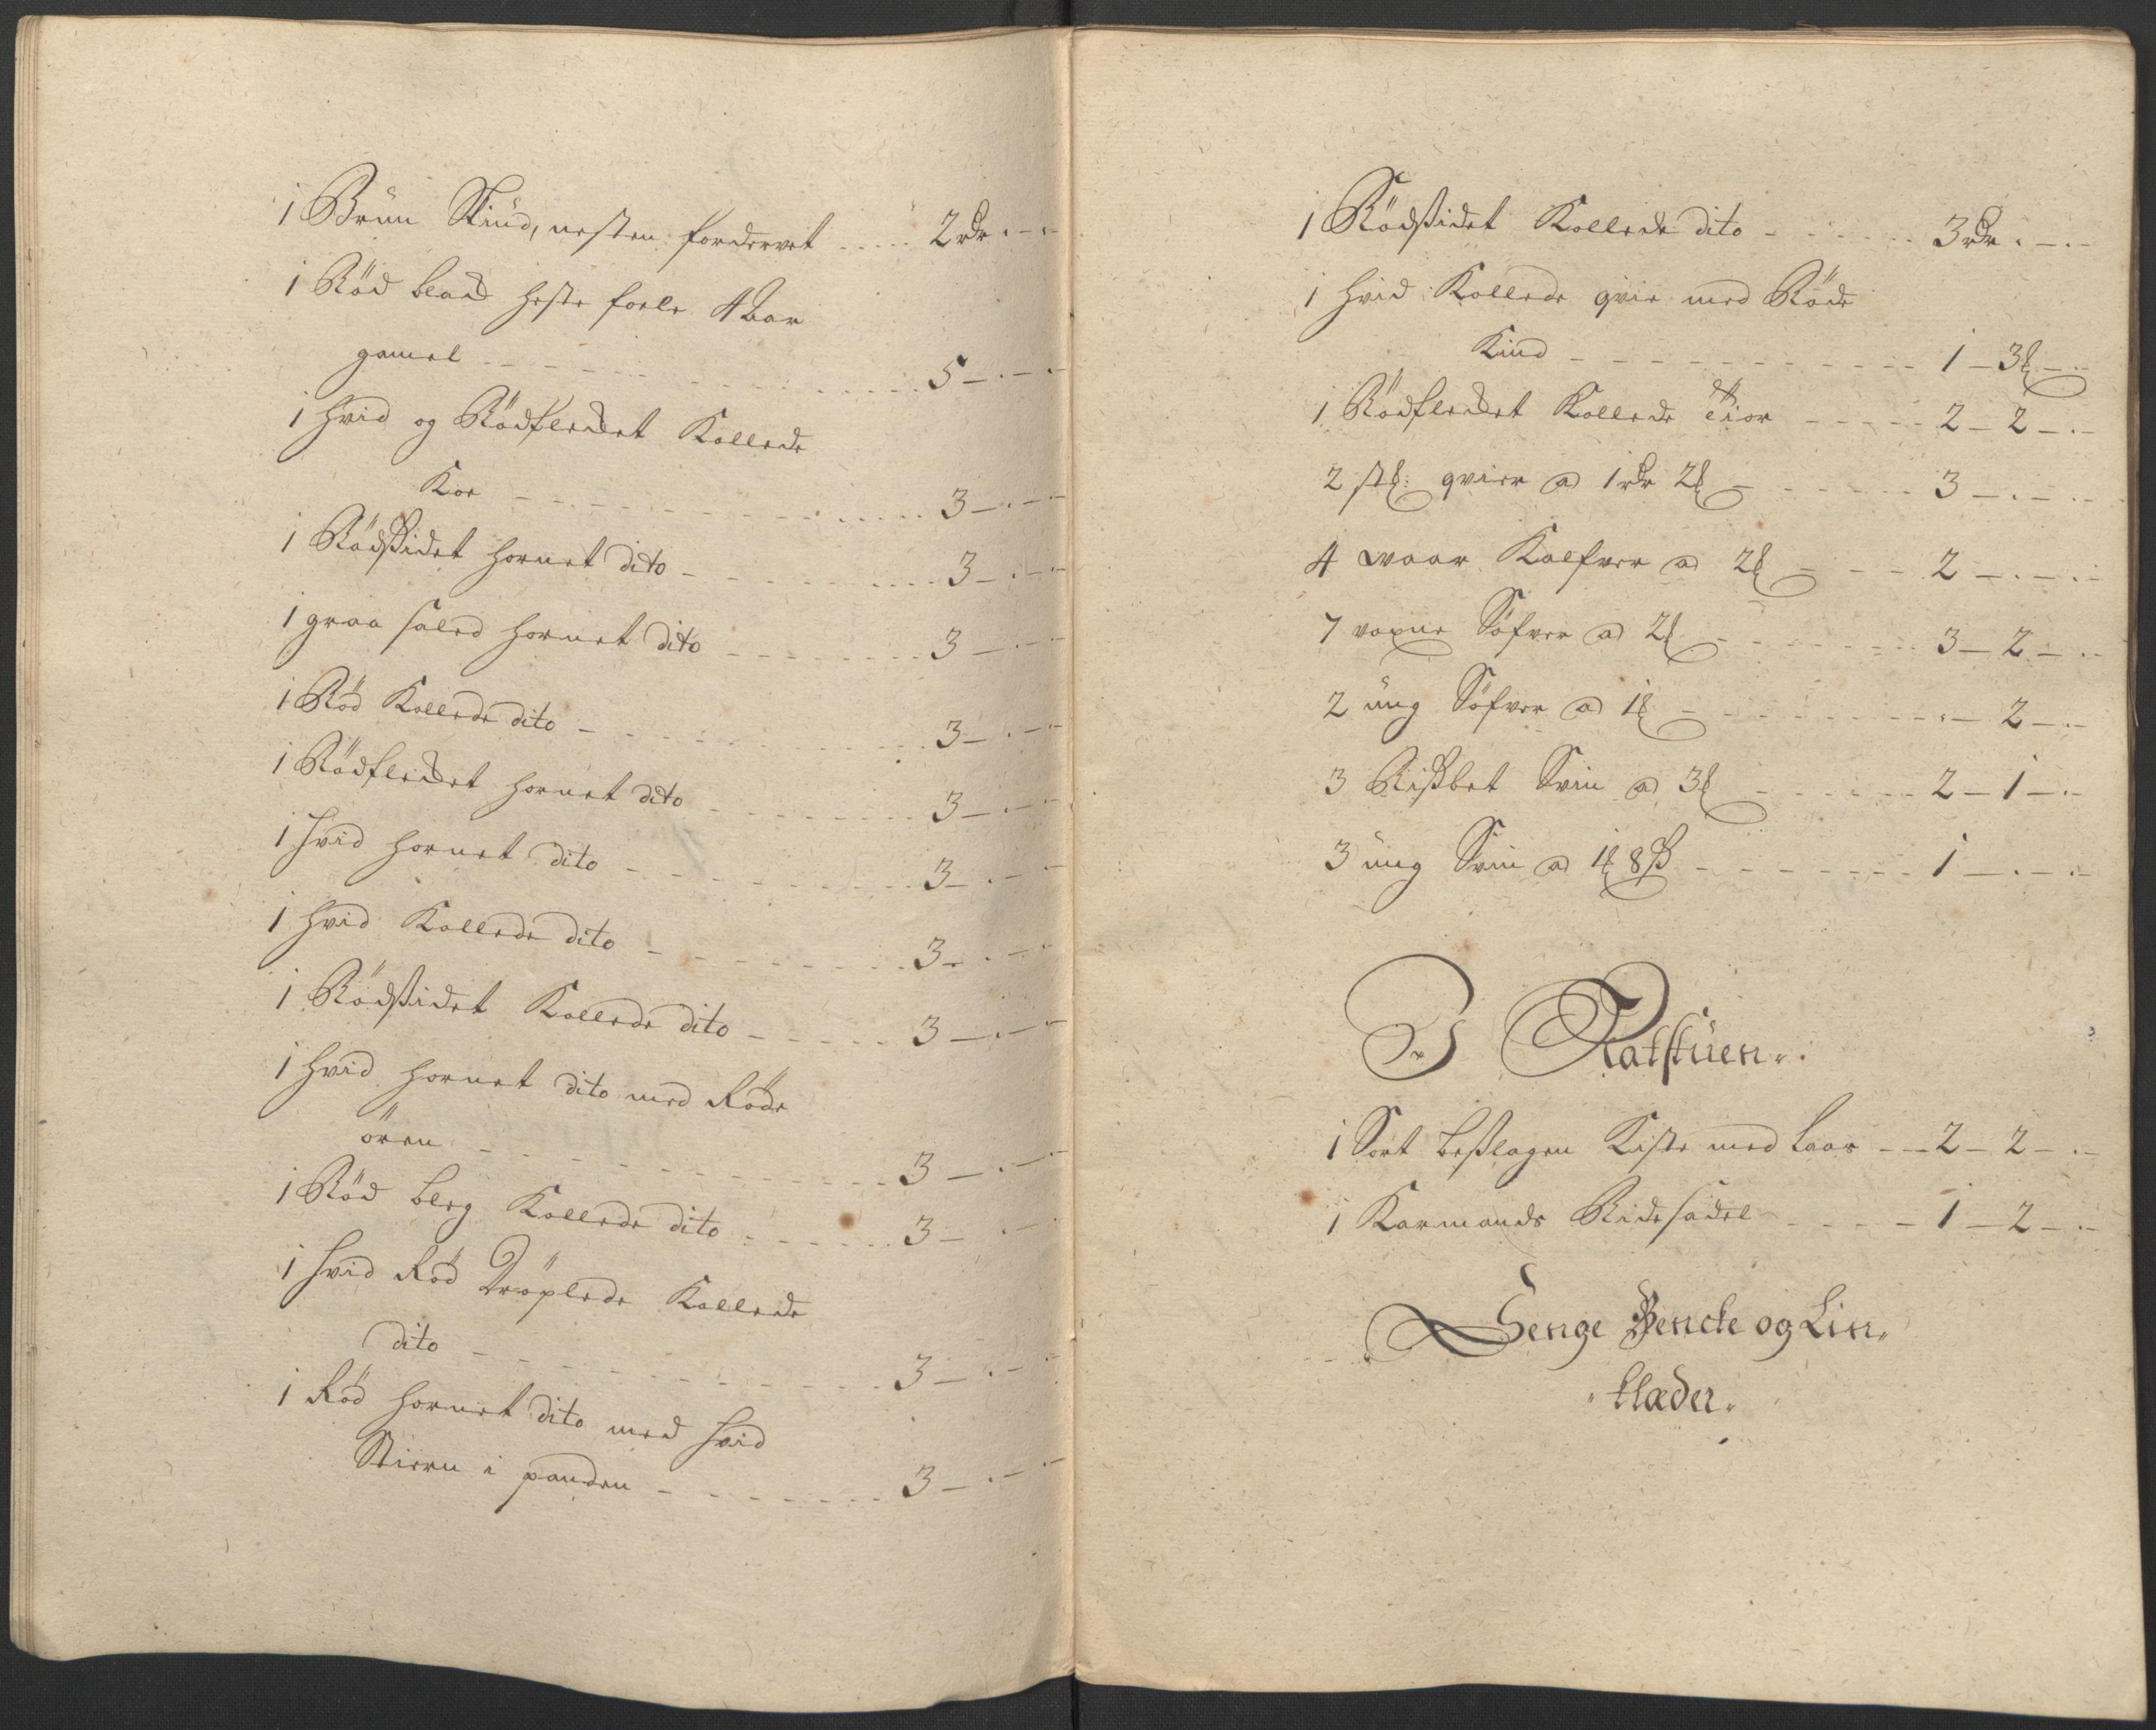 1 Brun Stiud, nesten fordervet ..... 2 rdr . - .
1 Röd blacket heste foele 4 Aar
gamel ..... 5 - . - .
1 Hvid og Rödflecket Kollede
Koe ..... 3 - . - .
1 Rödsidet hornet dito ..... 3 - . - .
1 graa saled hornet dito ..... 3 - . - .
1 Röd Kollede dito ..... 3 - . - .
1 Rödflecket hornet dito ..... 3 - . - .
1 Hvid hornet dito ..... 3 - . - .
1 Hvid Kollede dito ..... 3 - . - .
1 Rödsidet Kollede dito ..... 3 - . - .
1 Hvid hornet dito med Röde
ören ..... 3 - . - .
1 Röd bleg Kollede dito ..... 3 - . - .
1 Hvid Röd Dröplede Kollede
dito ..... 3 - . - .
1 Röd hornet dito med Hvid
Stiern i panden ..... 3 - . - .
1 Rödsidet Kollede dito ..... 3 rdr . - .
1 Hvid Kollede qvie med Röde
Kind ..... 1 - 3 - .
1 Rödflecket Kollede Tior ..... 2 - 2 - .
2 st: qvier a 1 rdr 2 ..... 3 - . - .
4 waar Kalfver a 2 ..... 2 - . - .
7 voxne Söfver a 2 ..... 3 - 2 - .
2 ung Söfver a 1 ..... . - 2 - .
3 Risbet Svin a 3 ..... 2 - 1 - .
3 ung Svin a 1 8 ß ..... 1 - . - .
I Ratstuen.
1 Sort beslagen Kiste med Laas ..... 2 - 2 - .
1 Karmands Ridesadel ..... 1 - 2 - .
Senge Bencke og Lin„
klæder.